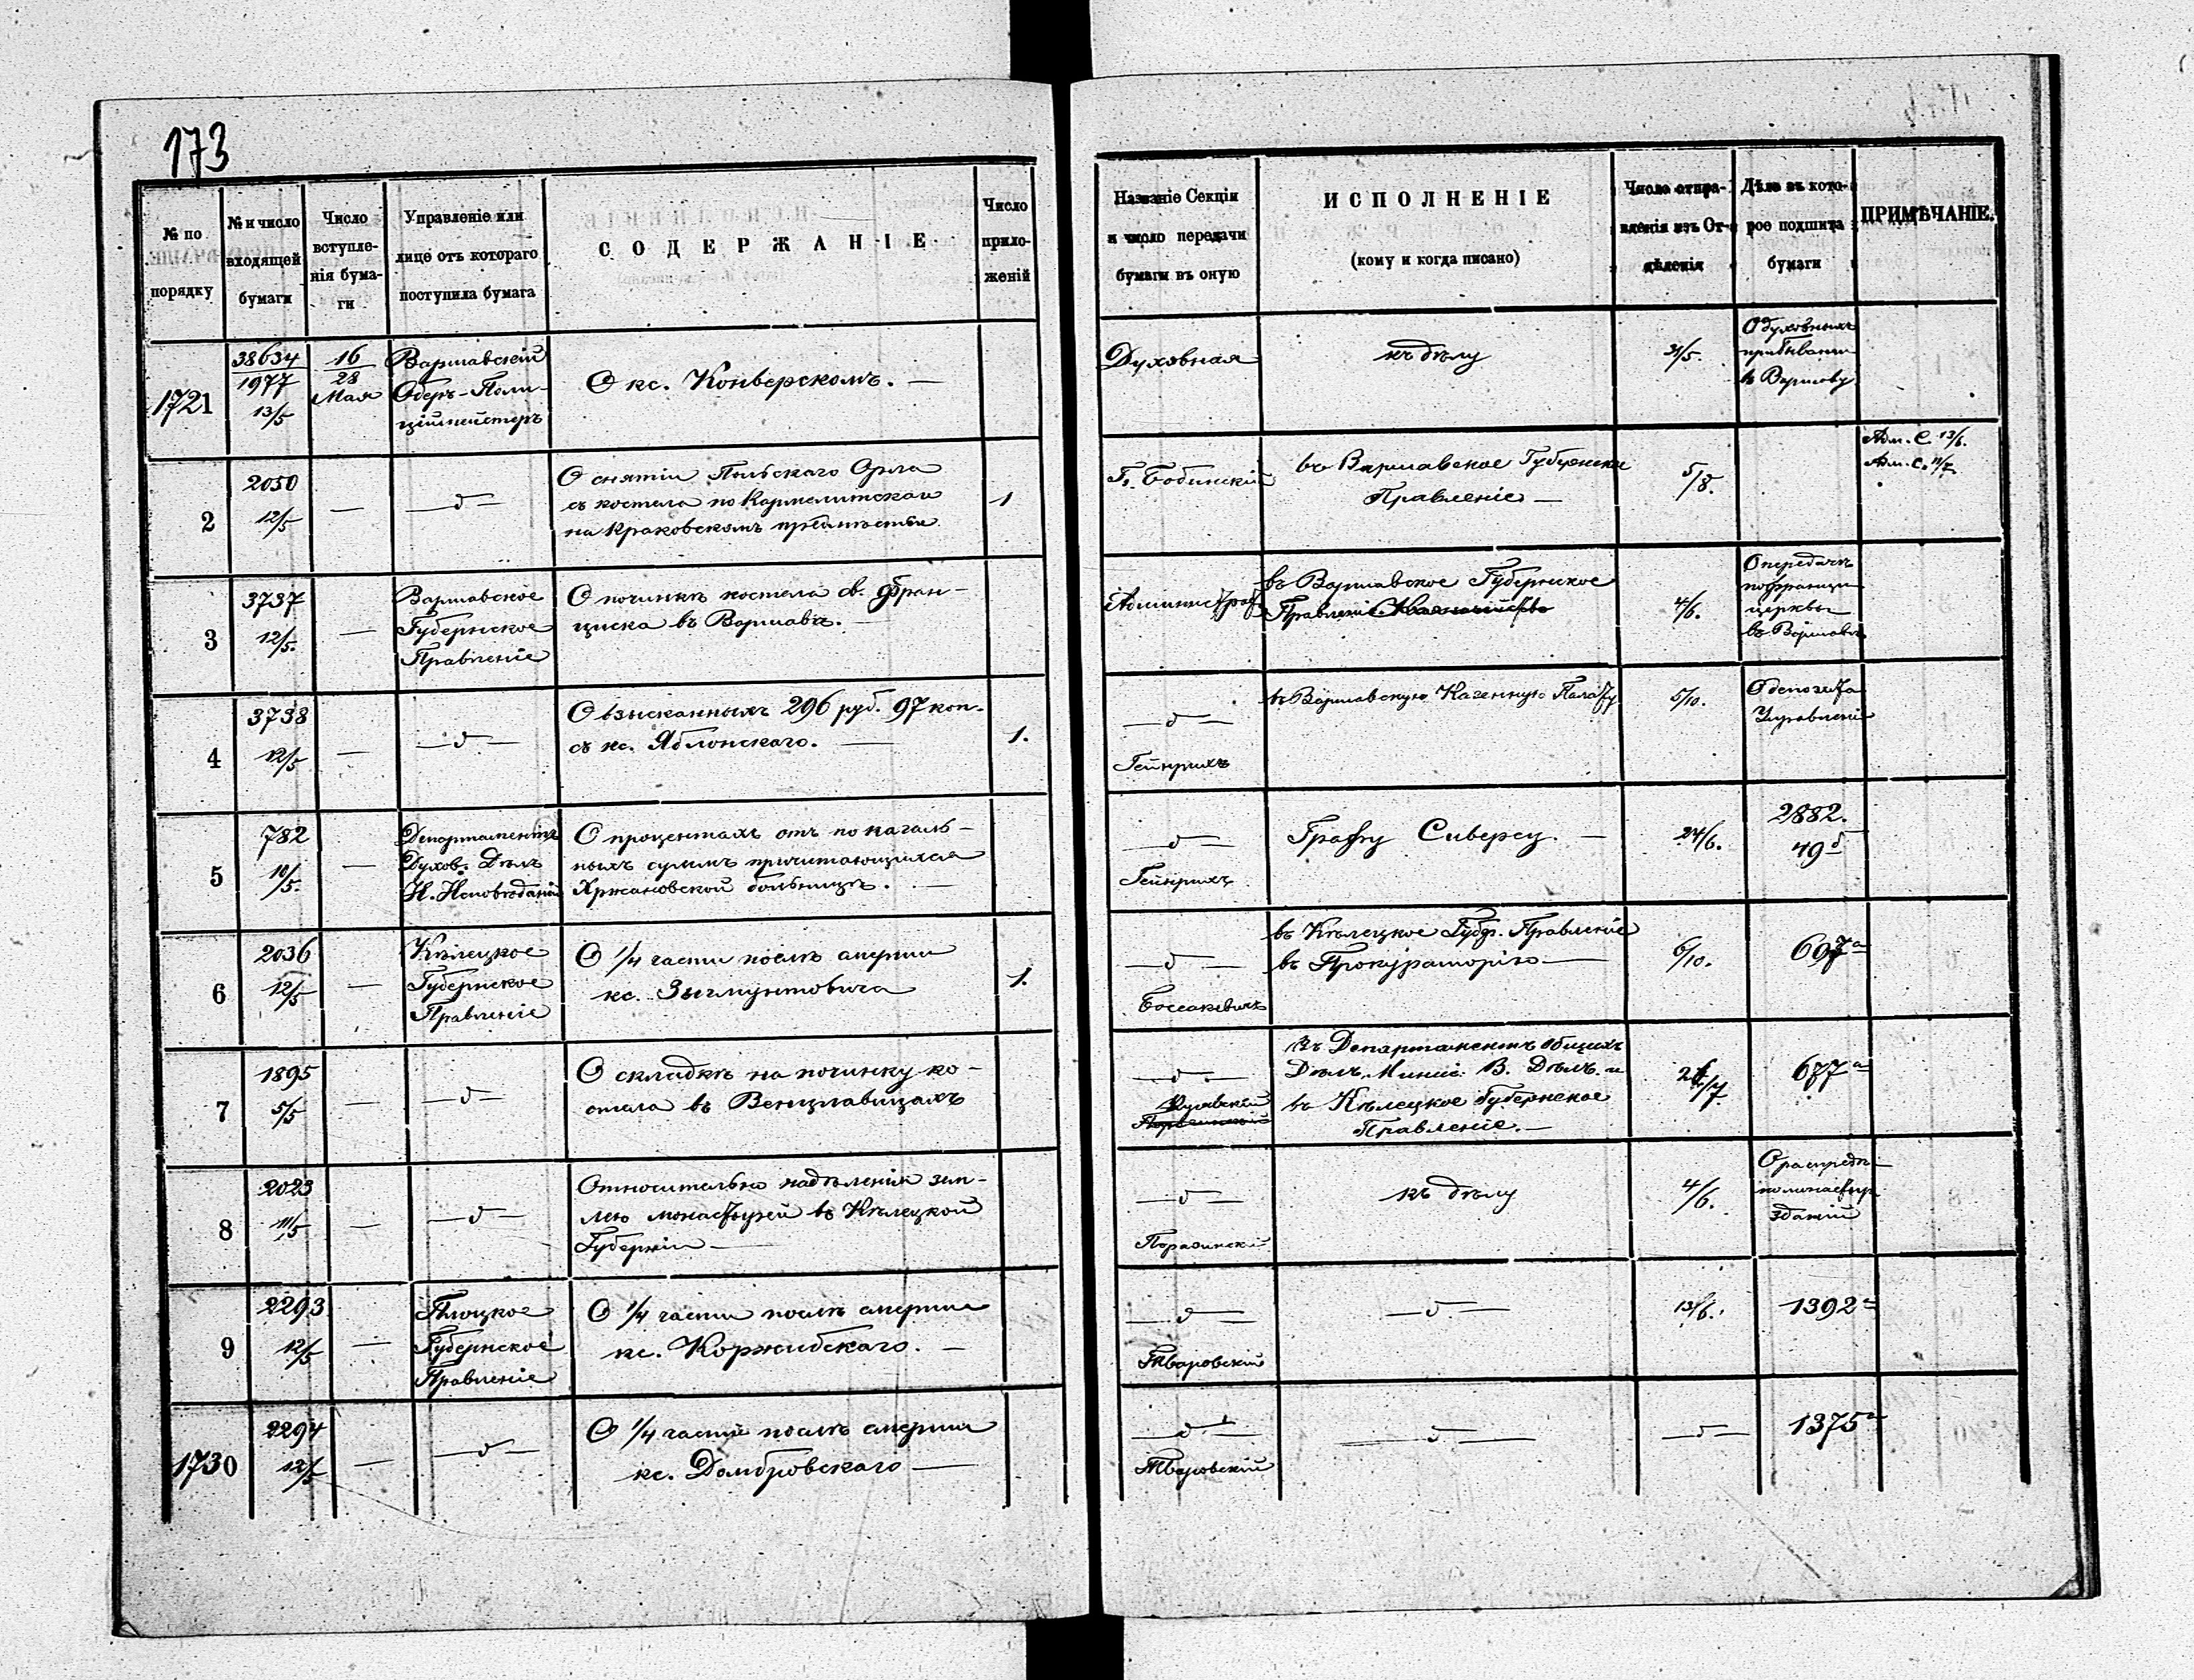 173
№ по порядку
№ и число входящей бумаги
Число вступле-нія бума-ги
Управленіе или лице отъ котораго поступила бумага
СОДЕРЖАНІЕ
Число прило-женій
Названіе Секціи и число передачи бумаги въ оную
ИСПОЛНЕНІЕ
(кому и когда писано)
Число отпра-вленія изъ От-дѣленія
Дѣло въ кото-рое подшита бумаги
ПРИМѢЧАНІЕ.
1721
38634
1977
13/5
16
28
Мая
Варшавскій
Оберъ-Поли-
ціймейстеръ
О кс. Конверскомъ. —
Духовная
къ дѣлу
31/5.
О духовныхъ
въ Варшаву
2
2050
12/5
—
—д—
О снятіи Польскаго Орла
съ костела по Кармелитскаго
на Краковскомъ предмѣстьи
1
Г. Бобинскій
въ Варшавское Губернское
Правленіе —
5/8.
Адм. С. 13/6.
Адм. С. 11/7.
3
3737
12/5.
—
Варшавское
Губернское
Правленіе
О починкѣ костела св. Фран-
циска въ Варшавѣ. —
въ Варшавское Губернское
Правленіе
4/6.
О передачѣ
церквы
въ Варшавѣ
4
3738
12/5
—
—д—
О взысканныхъ 296 руб. 97 коп.
съ кс. Яблонскаго. —
1.
—д—
Гейнрихъ
въ Варшавскую Казенную Палату
5/10.
О депозита
Управленія
5
782
10/5.
—
Департаментъ
Духов. Дѣлъ
И. Исповѣданій
О процентахъ отъ покагаль-
ныхъ суммъ причитающихся
Хржановской больницѣ. —
—д—
Гейнрихъ
Графу Сиверсу. —
24/6.
2882.
49 д
6
2036
12/5
—
Кѣлецкое
Губернское
Правленіе
О 1/4 части послѣ смерти
кс. Зыгмунтовича
1.
—д—
Боссакевичъ
въ Кѣлецкое Губер. Правленіе
въ Прокураторію —
6/10.
697 а
7
1895
5/5
—
—д—
О складкѣ на починку ко-
стела въ Венцлавицахъ
—д—
въ Департаментъ общихъ
Дѣлъ Минис. В. Дѣлъ. и
въ Кѣлецкое Губернское
Правленіе. —
677 а
8
2023
11/5
—
—д—
Относительно надѣленія зем-
лею монастырей въ Кѣлецкой
Губерніи —
—д—
къ дѣлу
4/6.
зданій
9
2293
12/5
—
Плоцкое
Губернское
Правленіе
О 1/4 части послѣ смерти
кс. Коржибскаго. —
—д—
Тваровскій
—д—
13/6.
1392 а
1730
2294
12/5
—
—д—
О 1/4 части послѣ смерти
кс. Домбровскаго —
—д—
Тваровскій
—д—
—д—
1375 а